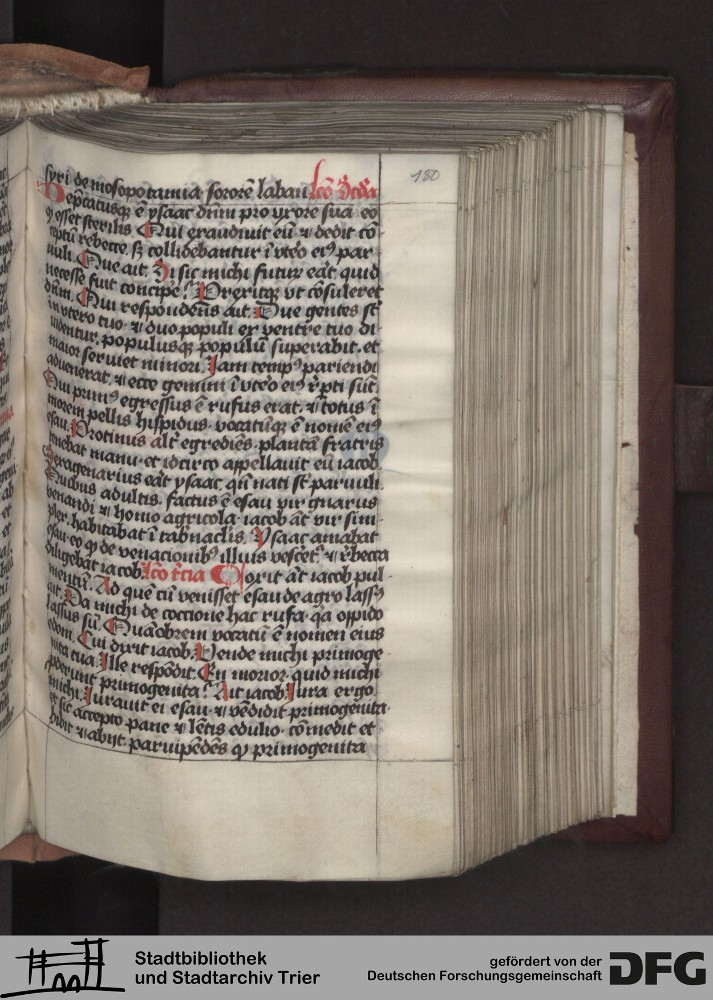 180
syri de mosopotamia sororē laban lcō scđa
Depcatusq3 ē ysaac dn̄m pro vxore sua eo
ꝙ esset sterilis Qui exaudiuit eū ⁊ dedit cō
ceptū rebecce. s3 collidebantur ī vtēo eiꝰ par
uuli. Que ait. Si sic michi futur̄ eāt quid
necesse fuit concipe? Prerītq3 vt cōsuleret
dūm. Qui respondens ait. Due gentes st̄
in vtero tuo ⁊ duo populi ex ventre tuo di
uidentur. populusq3 populū superabit. et
maior seruiet minori. Jam tempꝰ pariendi
aduenerat. ⁊ ecce gemini ī vtēo eiꝰ rp̄ti sūt
Qui primꝰ egressus ē rufus erat. ⁊ totus ī
morem pellis hispidus. vocatūq3 ē nomē eiꝰ
esau. Protinus alt̄ egrediēs. plantā fratris
tenebat manu. et idcirco appellauit eū iacob
Sexagenarius eāt ysaac. qn̄ nati st̄ paruuli.
Quibus adultis. factus ē esau vir gnarus
venandi ⁊ homo agricola. iacob āt vir sim
plex. habitabat ī tab̄naclis. Ysaac amabat
esau. eo ꝙ de venacionibꝰ illius vescet̄. ⁊ r̄becca
diligebat iacob. lcō t̄cia Coxit āt iacob pul
mentū. Ad quē cū venisset esau de agro lassꝰ
ait. Da michi de coccione hac rufa. qa oppido
lassus sū. Quāobrem vocatū ē nomen eius
edom. Cui dixit iacob. Vende michi primoge
nita tua. Ille respōdit. En morior. quid michi
ꝓderunt primogenita? Ait iacob Jura ergo
michi. Jurauit ei esau. ⁊ vēdidit primogenita.
et sic accepto pane ⁊ lētis edulio. cōmedit et
bibit ⁊ abijt. paruipēdēs ꝙ primogenita
Stadtbibliothek
und Stadtarchiv Trier
gefördert von der
Deutschen Forschungsgemeinschaft
DFG